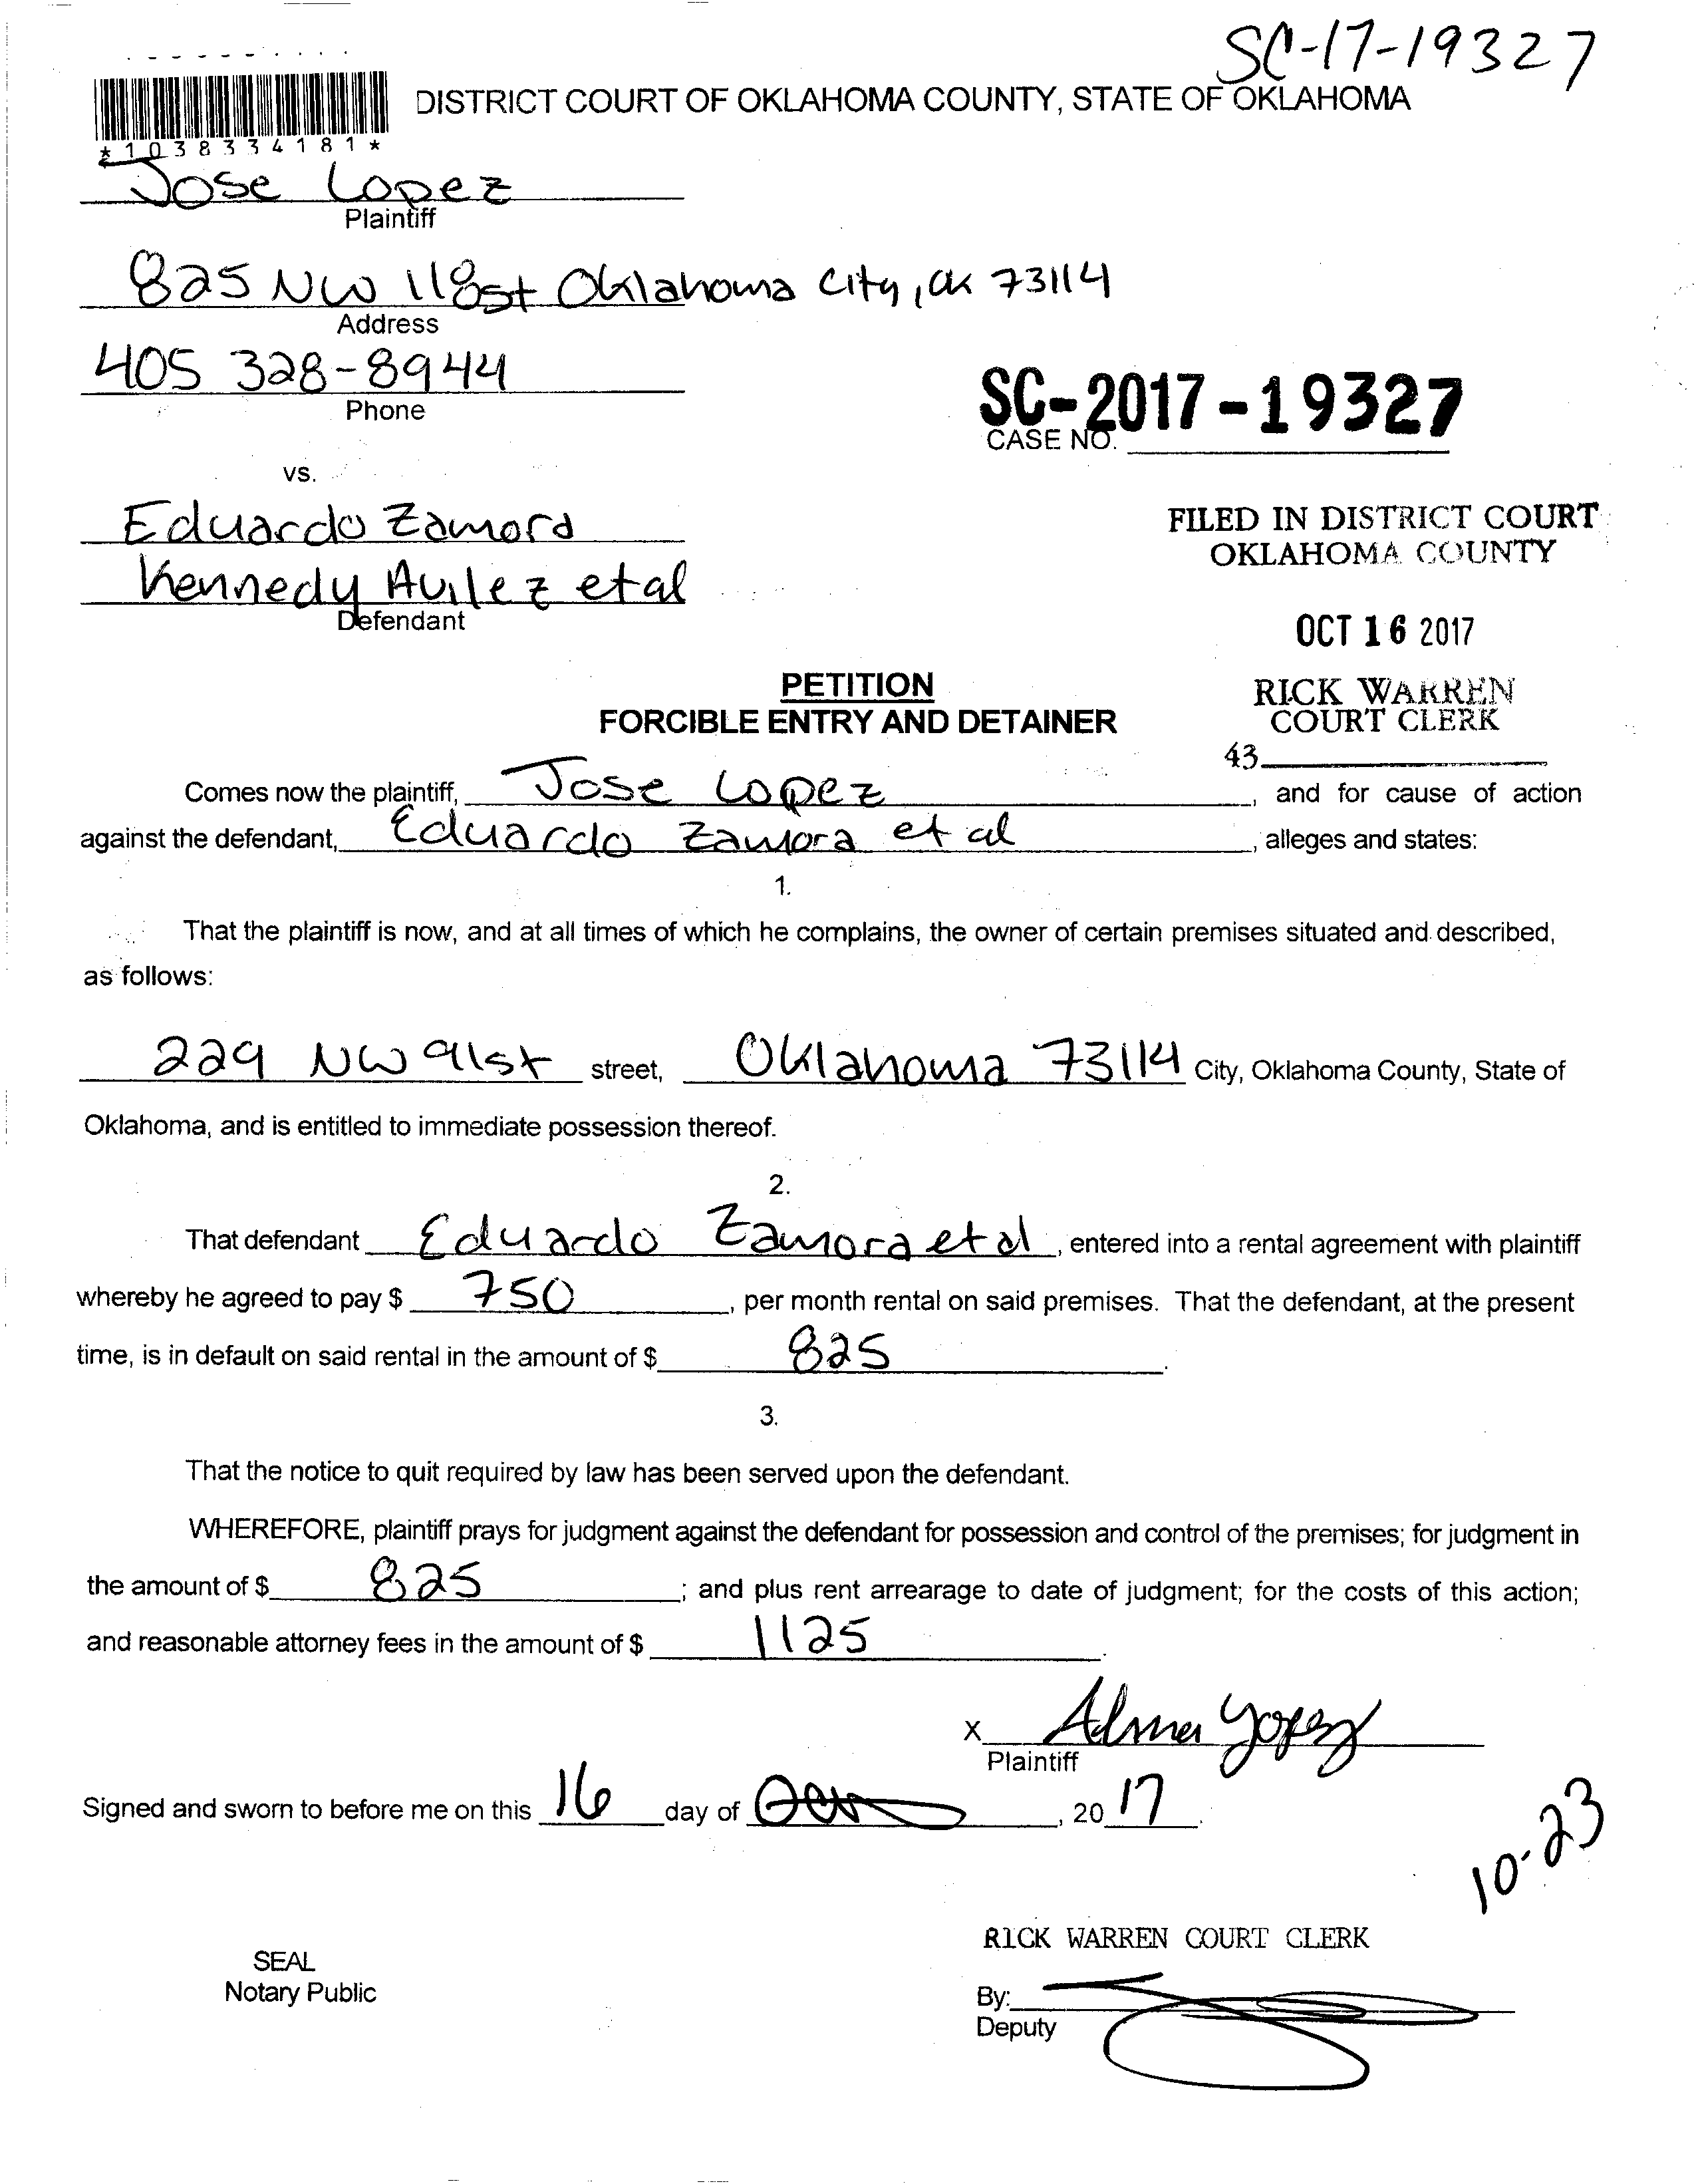 SC-17-19327
DISTRICT COURT OF OKLAHOMA COUNTY, STATE OF OKLAHOMA
*1038334181*
Jose Lopez
Plaintiff
825 NW 118st Oklahoma City, OK 73114
Address
405 328-8944
Phone
SC-2017-19327
CASE NO.
vs.
Eduardo Zamora
Kennedy Avilez et al
Defendant
FILED IN DISTRICT COURT
OKLAHOMA COUNTY
OCT 16 2017
RICK WARREN
COURT CLERK
43
PETITION
FORCIBLE ENTRY AND DETAINER
Comes now the plaintiff, Jose Lopez, and for cause of action
against the defendant, Eduardo Zamora et al, alleges and states:
1.
That the plaintiff is now, and at all times of which he complains, the owner of certain premises situated and described,
as follows:
229 NW 91st street, Oklahoma 73114 City, Oklahoma County, State of
Oklahoma, and is entitled to immediate possession thereof.
2.
That defendant Eduardo Zamora et al, entered into a rental agreement with plaintiff
whereby he agreed to pay $ 750, per month rental on said premises. That the defendant, at the present
time, is in default on said rental in the amount of $ 825.
3.
That the notice to quit required by law has been served upon the defendant.
WHEREFORE, plaintiff prays for judgment against the defendant for possession and control of the premises; for judgment in
the amount of $ 825; and plus rent arrearage to date of judgment; for the costs of this action;
and reasonable attorney fees in the amount of $ 1125.
X Alma
Plaintiff
Signed and sworn to before me on this 16 day of , 20 17.
10-23
RICK WARREN COURT CLERK
SEAL
Notary Public
By:
Deputy